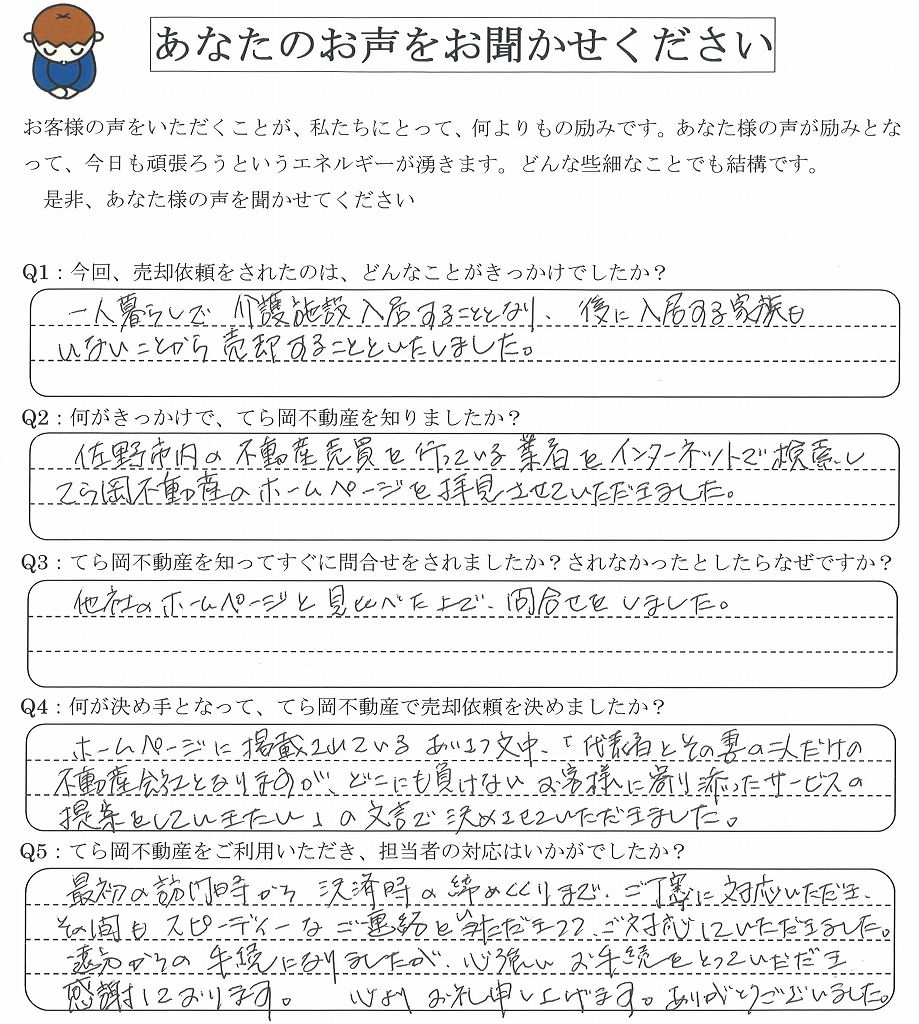 あなたのお声をお聞かせください
お客様の声をいただくことが、私たちにとって、何よりもの励みです。あなた様の声が励みとな
って、今日も頑張ろうというエネルギーが湧きます。どんな些細なことでも結構です。
是非、あなた様の声を聞かせてください
Q1：今回、売却依頼をされたのは、どんなことがきっかけでしたか？
一人暮らしで 介護施設入居することとなり、後に入居する家族も
いないことから売却することといたしました。
Q2：何がきっかけで、てら岡不動産を知りましたか？
佐野市内の不動産売買を行っている業者をインターネットで検索し
てら岡不動産のホームページを拝見させていただきました。
Q3：てら岡不動産を知ってすぐに問合せをされましたか？されなかったとしたらなぜですか？
他社のホームページと見比べた上で、問合せをしました。
Q4：何が決め手となって、てら岡不動産で売却依頼を決めましたか？
ホームページに掲載されているあいさつ文中、「代表者とその妻の二人だけの
不動産会社となりますが、どこにも負けないお客様に寄り添ったサービスの
提案をしていきたい」の文言で決めさせていただきました。
Q5：てら岡不動産をご利用いただき、担当者の対応はいかがでしたか？
最初の訪問時から決済時の締めくくりまで、ご丁寧に対応いただき、
その間もスピーディーなご連絡を ご対応していただきました。
遠方からの手続になりましたが、心強いお手続をとっていただき
感謝しております。 心よりお礼申し上げます。ありがとうございました。